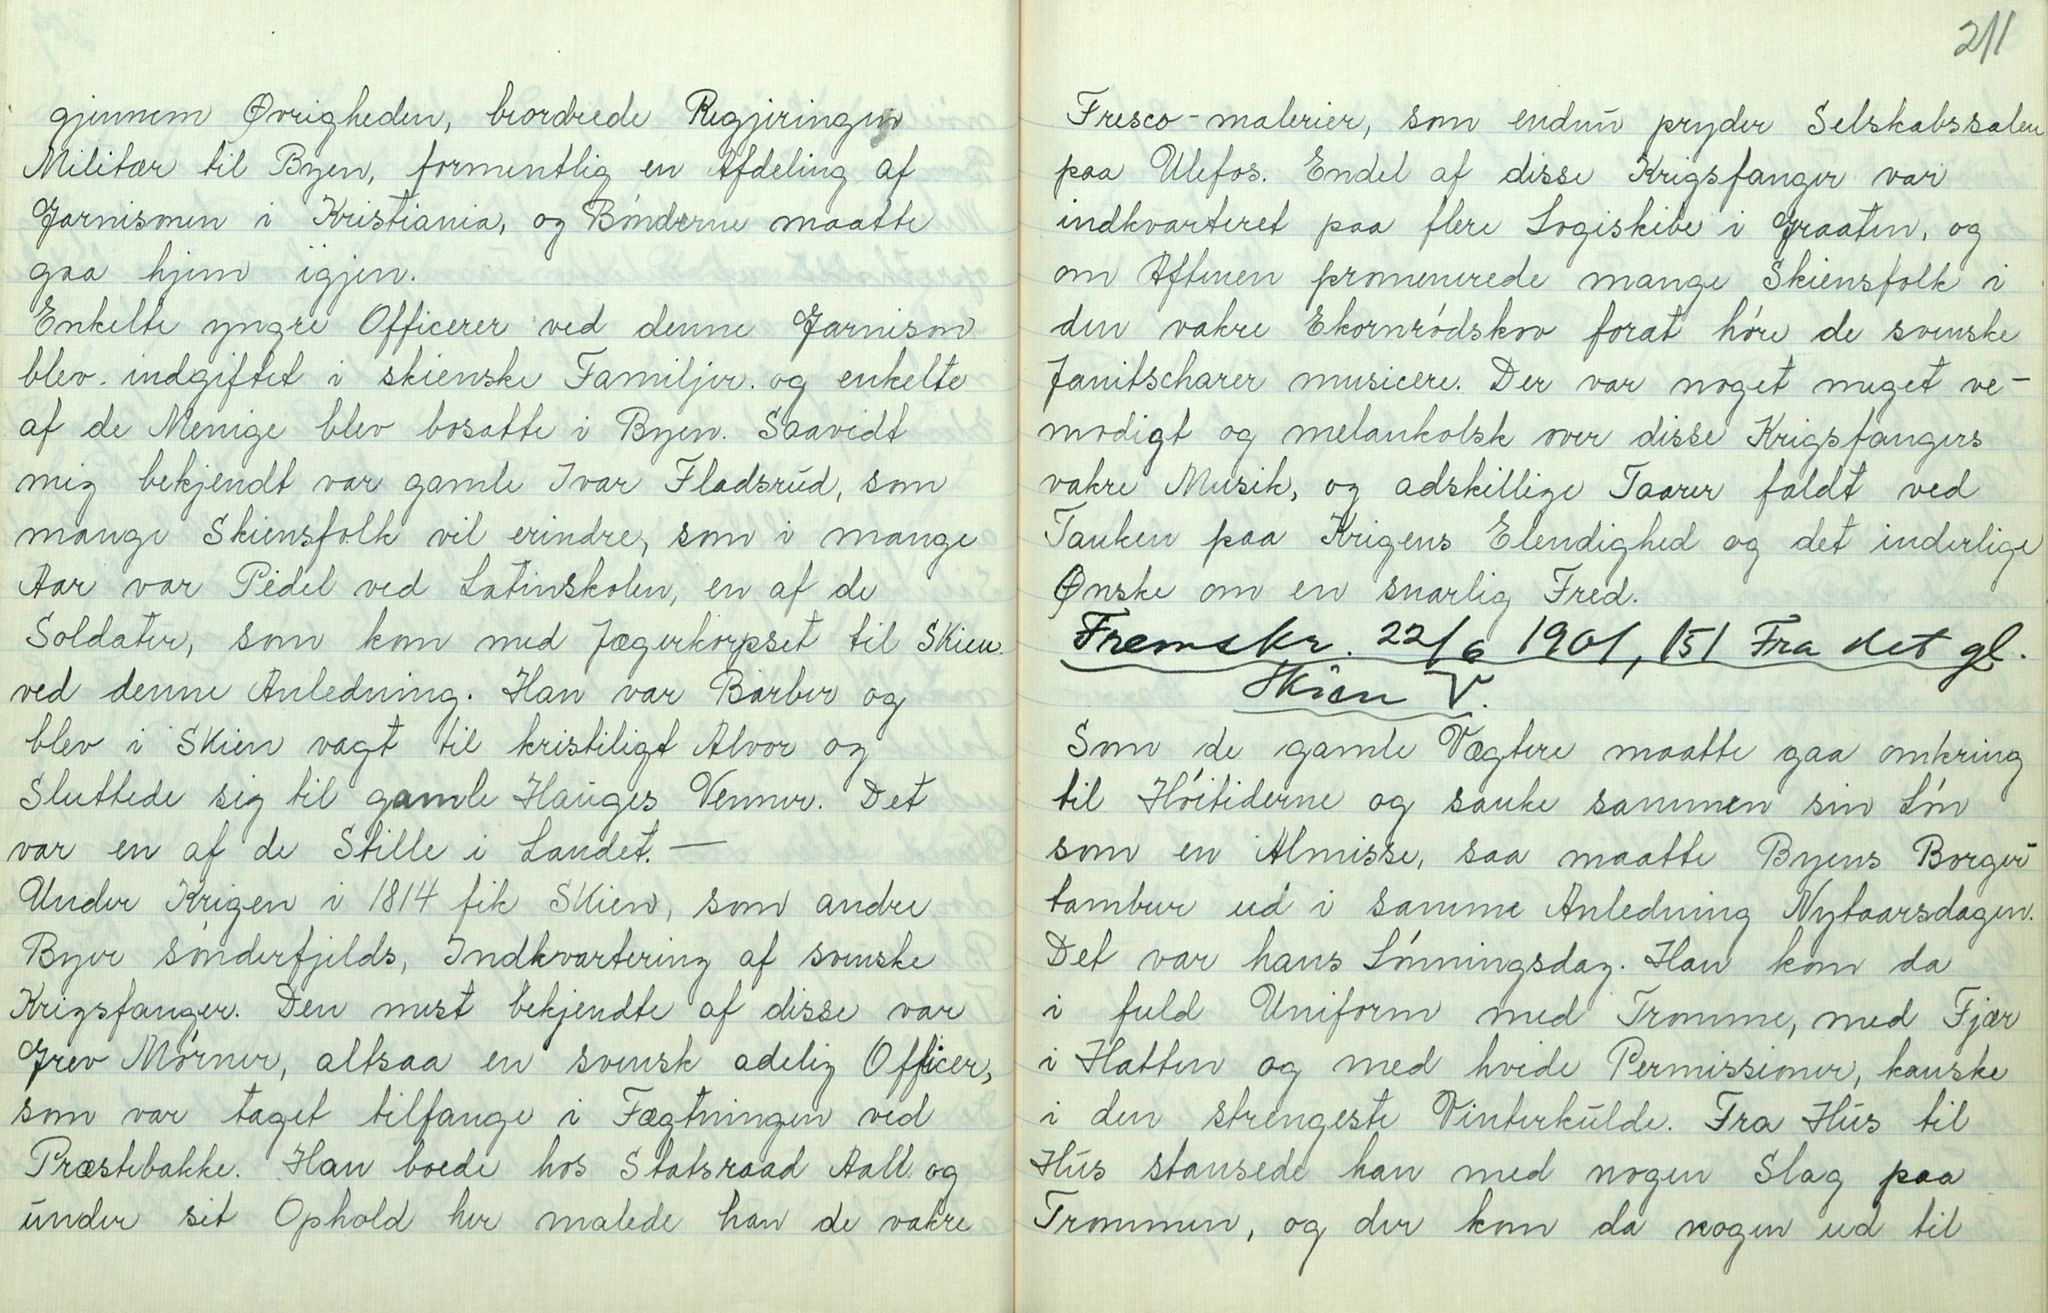 gjennem Øvrigheden, beordrede Regjeringen
Militær til Byen, formentlig en Afdeling af
Garnisonen i Kristiania, og Bønderne maatte
gaa hjem igjen.
Enkelte yngre Officerer ved denne Garnison
blev indgiftet i skienske Familjer og enkelte
af de Menige blev bosatte i Byen. Saavidt
mig bekjendt var gamle Ivar Fladsrud, som
mange Skiensfolk vil erindre, som i mange
Aar var Pedel ved Latinskolen, en af de
Soldater, som kom med Jægerkorpset til Skien
ved denne Anledning. Han var Barber og
blev i Skien vagt til kristiligt Alvor og
Sluttede sig til gamle Hauges Venner. Det
var en af de Stille i Landet. —
Under Krigen i 1814 fik Skien, som andre
Byer søndenfjelds, Indkvartering af svenske
Krigsfanger. Den mest bekjendte af disse var
Grev Mørner, altsaa en svensk adelig Officer,
som var taget tilfange i Fægtningen ved
Præstebakke. Han boede hos Statsraad Aall og
under sit Ophold her malede han de vakre
211
Fresco-malerier, som endnu pryder Selskabssalen
paa Ulefos. Endel af disse Krigsfanger var
indkvarteret paa flere Logiskibe i Graaten, og
om Aftenen promenerede mange Skiensfolk i
den vakre Ekornrødskov forat høre de svenske
Janitscharer musicere. Der var noget meget ve-
modigt og melankolsk over disse Krigsfangers
vakre Musik, og adskillige Taarer faldt ved
Tanken paa Krigens Elendighed og det inderlige
Ønske om en snarlig Fred.
Fremskr. 22/6 1901, 151 Fra det gl.
Skien V.
Som de gamle Vægtere maatte gaa omkring
til Høitiderne og sanke sammen sin Løn
som en Almisse, saa maatte Byens Borger
tambur ud i samme Anledning Nytaarsdagen.
Det var hans Lønningsdag. Han kom da
i fuld Uniform med Tromme, med Fjær
i Hatten og med hvide Permissioner, kanske
i den strengeste Vinterkulde. Fra Hus til
Hus stansede han med nogen Slag paa
Trommen, og der kom da nogen ud til